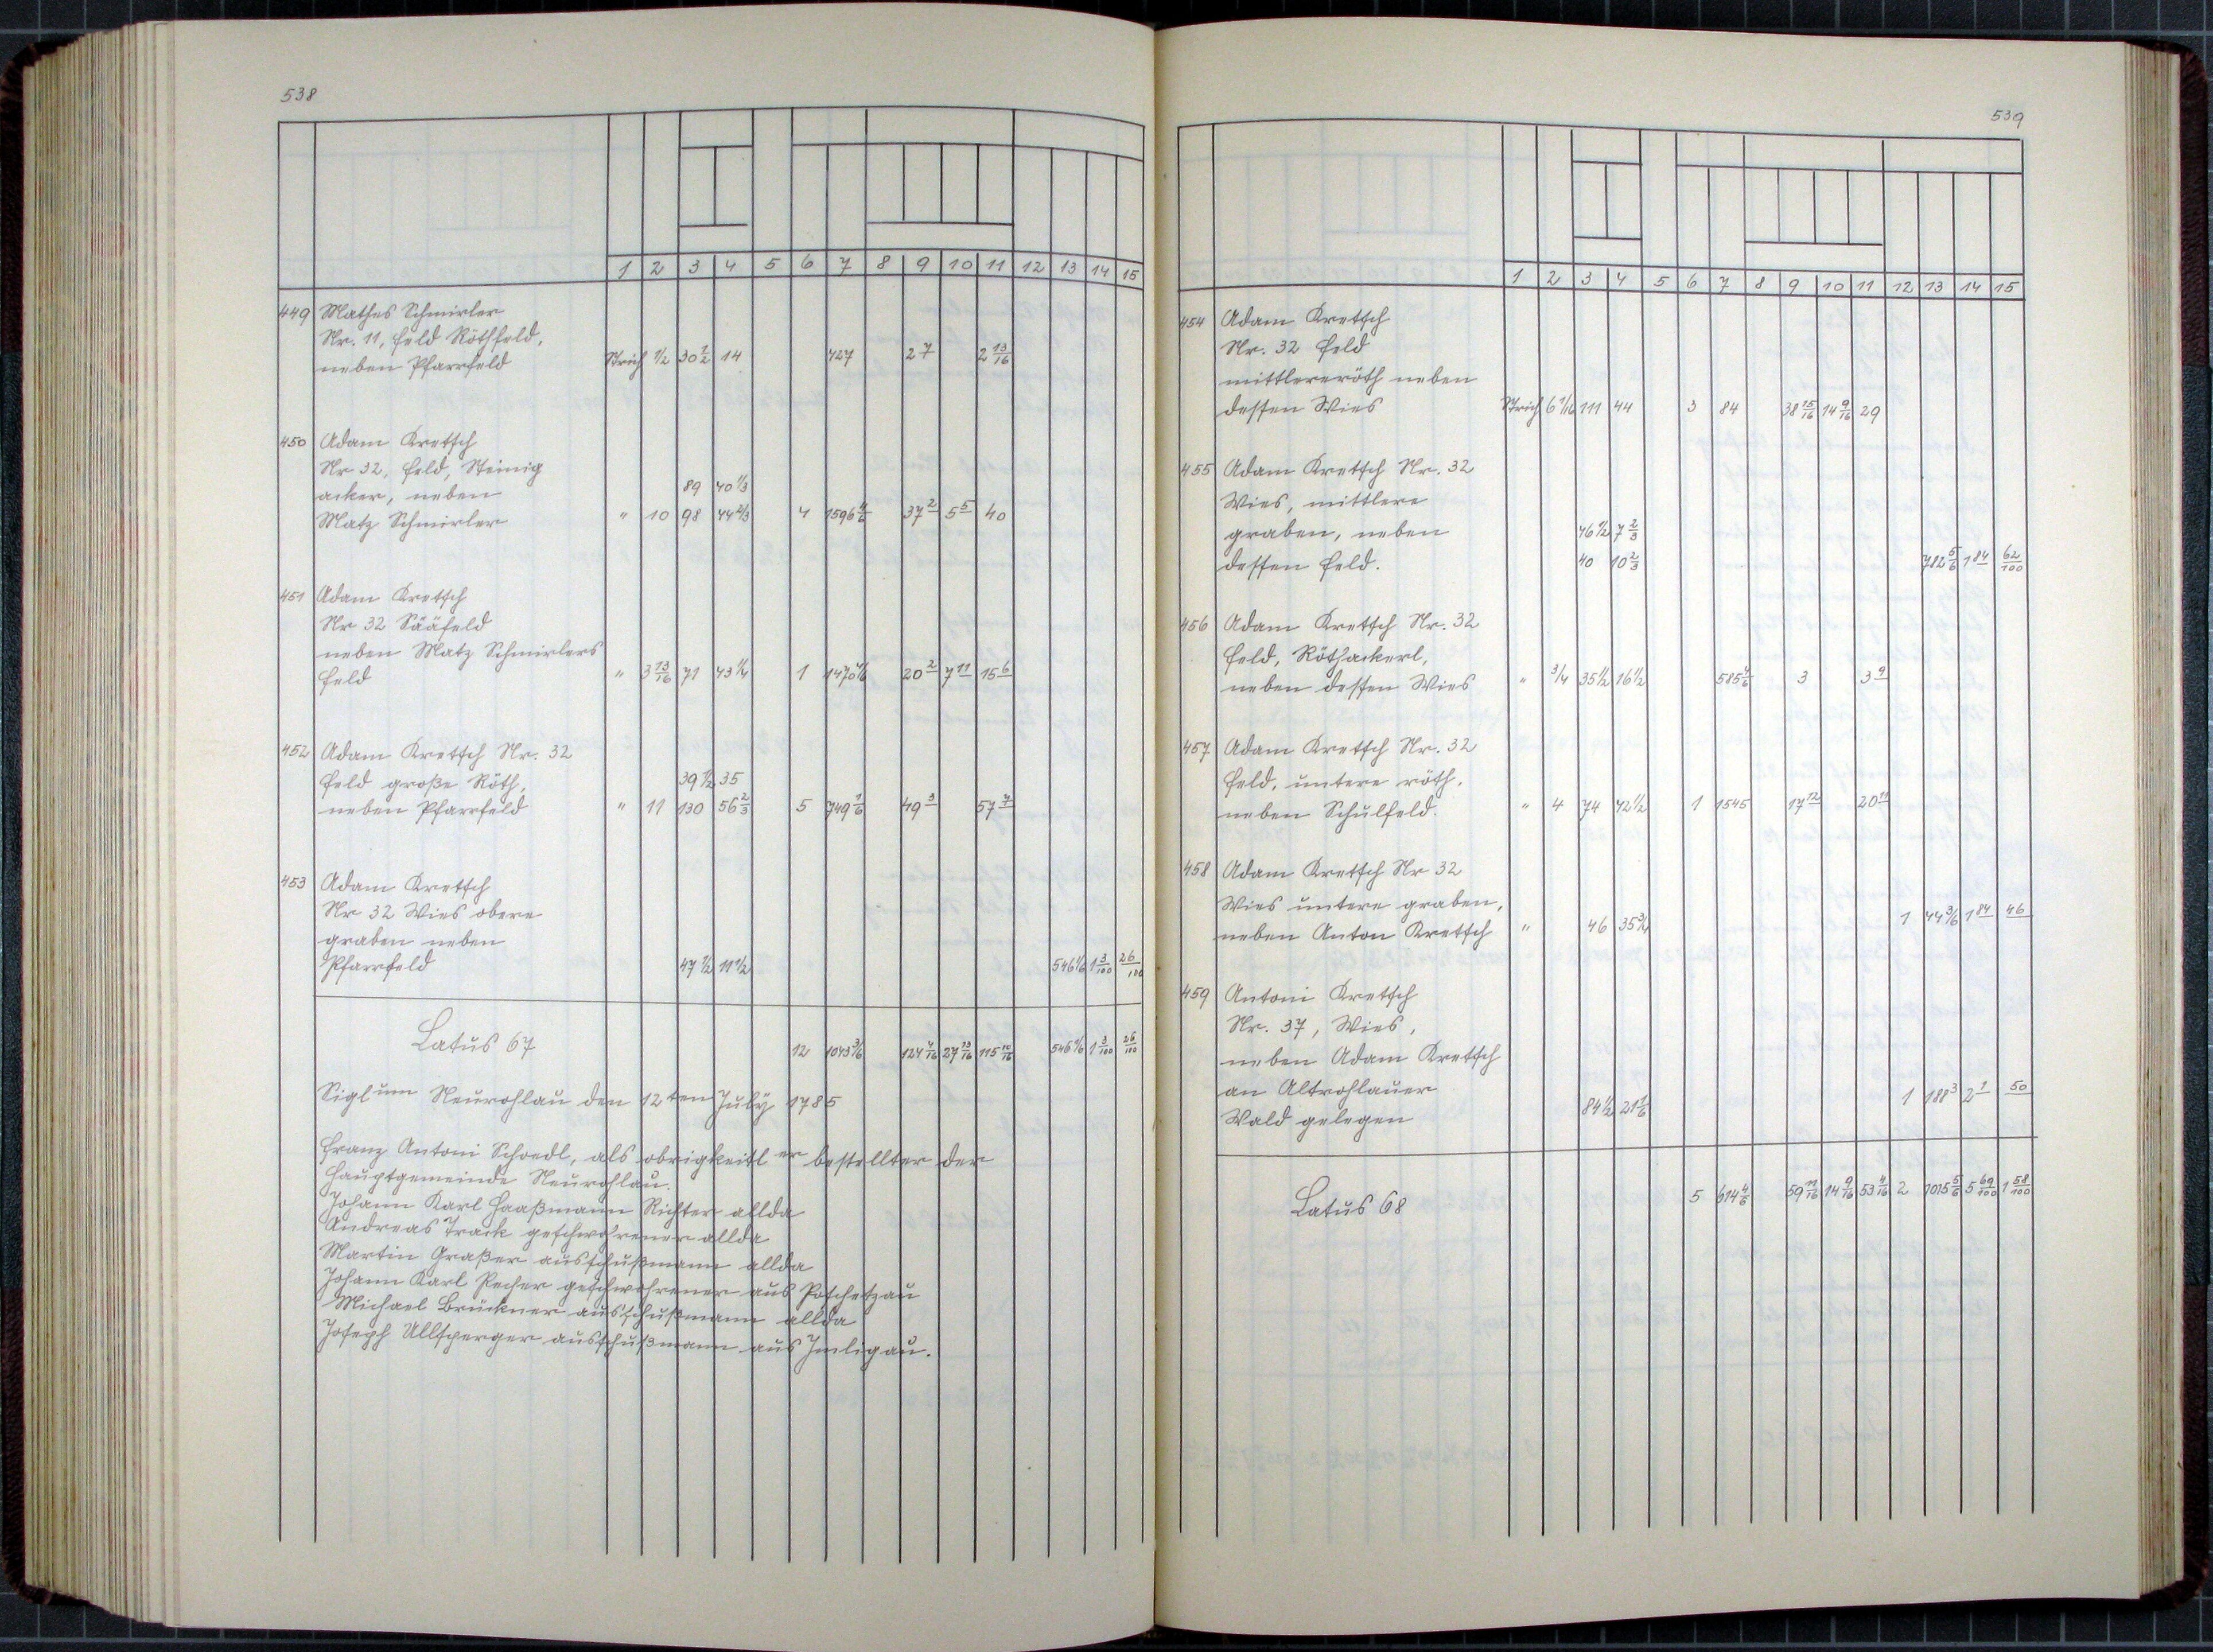 538
1 2 3 4 5 6 7 8 9 10 11 12 13 14 15
449 Mathes Schmirler
Nr. 11, Feld Röthfeld,
neben Pfarrfeld Strich 1/2 30 1/2 14 727 2 7 2 13/16
450 Adam Kretsch
Nr 32, Feld, Steinig
acker, neben 89 40 1/3
Matz Schmirler " 10 98 44 2/3 4 1596 4/6 37 2 5 5 40
451 Adam Kretsch
Nr 32 Sääfeld
neben Matz Schmirlers
Feld " 3 13/16 71 43 1/4 1 1470 4/6 20 2 7 11 15 6
452 Adam Kretsch Nr. 32
Feld große Röth, 39 1/2 35
neben Pfarrfeld " 11 130 56 2/3 5 749 1/6 49 3 57 7
453 Adam Kretsch
Nr 32 Wies obere
graben neben
Pfarrfeld 47 1/2 11 1/2 546 1/6 1 3/100 26/100
Latus 67 12 1043 3/6 124 4/16 27 13/16 115 10/16 546 1/6 1 3/100 26/100
Siglum Neurohlau den 12ten July 1785
Franz Antoni Schoedl, als obrigkeitler bestellter der
Hauptgemeinde Neurohlau.
Johann Karl Haaßmann Richter allda
Andreas Track geschwohrener allda
Martin Graßer ausschußmann allda
Johann Karl Pecher geschwohrener aus Poschetzau
Michael Brückner ausschußmann allda
Joseph Ullsperger ausschußmann aus Imligau.
539
1 2 3 4 5 6 7 8 9 10 11 12 13 14 15
454 Adam Kretsch
Nr. 32 Feld
mittlereröth neben
dessen Wies Strich 6 1/16 111 44 3 84 38 15/16 14 9/16 29
455 Adam Kretsch Nr. 32
Wies, mittlere
graben, neben 46 1/2 7 2/3
dessen Feld. 40 10 2/3 782 5/6 1 84 62/100
456 Adam Kretsch Nr. 32
Feld, Röthackerl,
neben dessen Wies " 3/4 35 1/2 16 1/2 585 4/6 3 3 9
457 Adam Kretsch Nr. 32
Feld, untere röth,
neben Schulfeld. " 4 74 42 1/2 1 1545 17 12 20 11
458 Adam Kretsch Nr 32
Wies untere graben,
neben Anton Kretsch " 46 35 3/4 1 44 3/6 1 84 46
459 Antoni Kretsch
Nr. 37, Wies,
neben Adam Kretsch
an Altrohlauer
Wald gelegen 84 1/2 21 1/6 1 188 3 2 1 50
Latus 68 5 614 4/6 59 11/16 14 9/16 53 4/16 2 1015 5/6 5 69/100 1 58/100